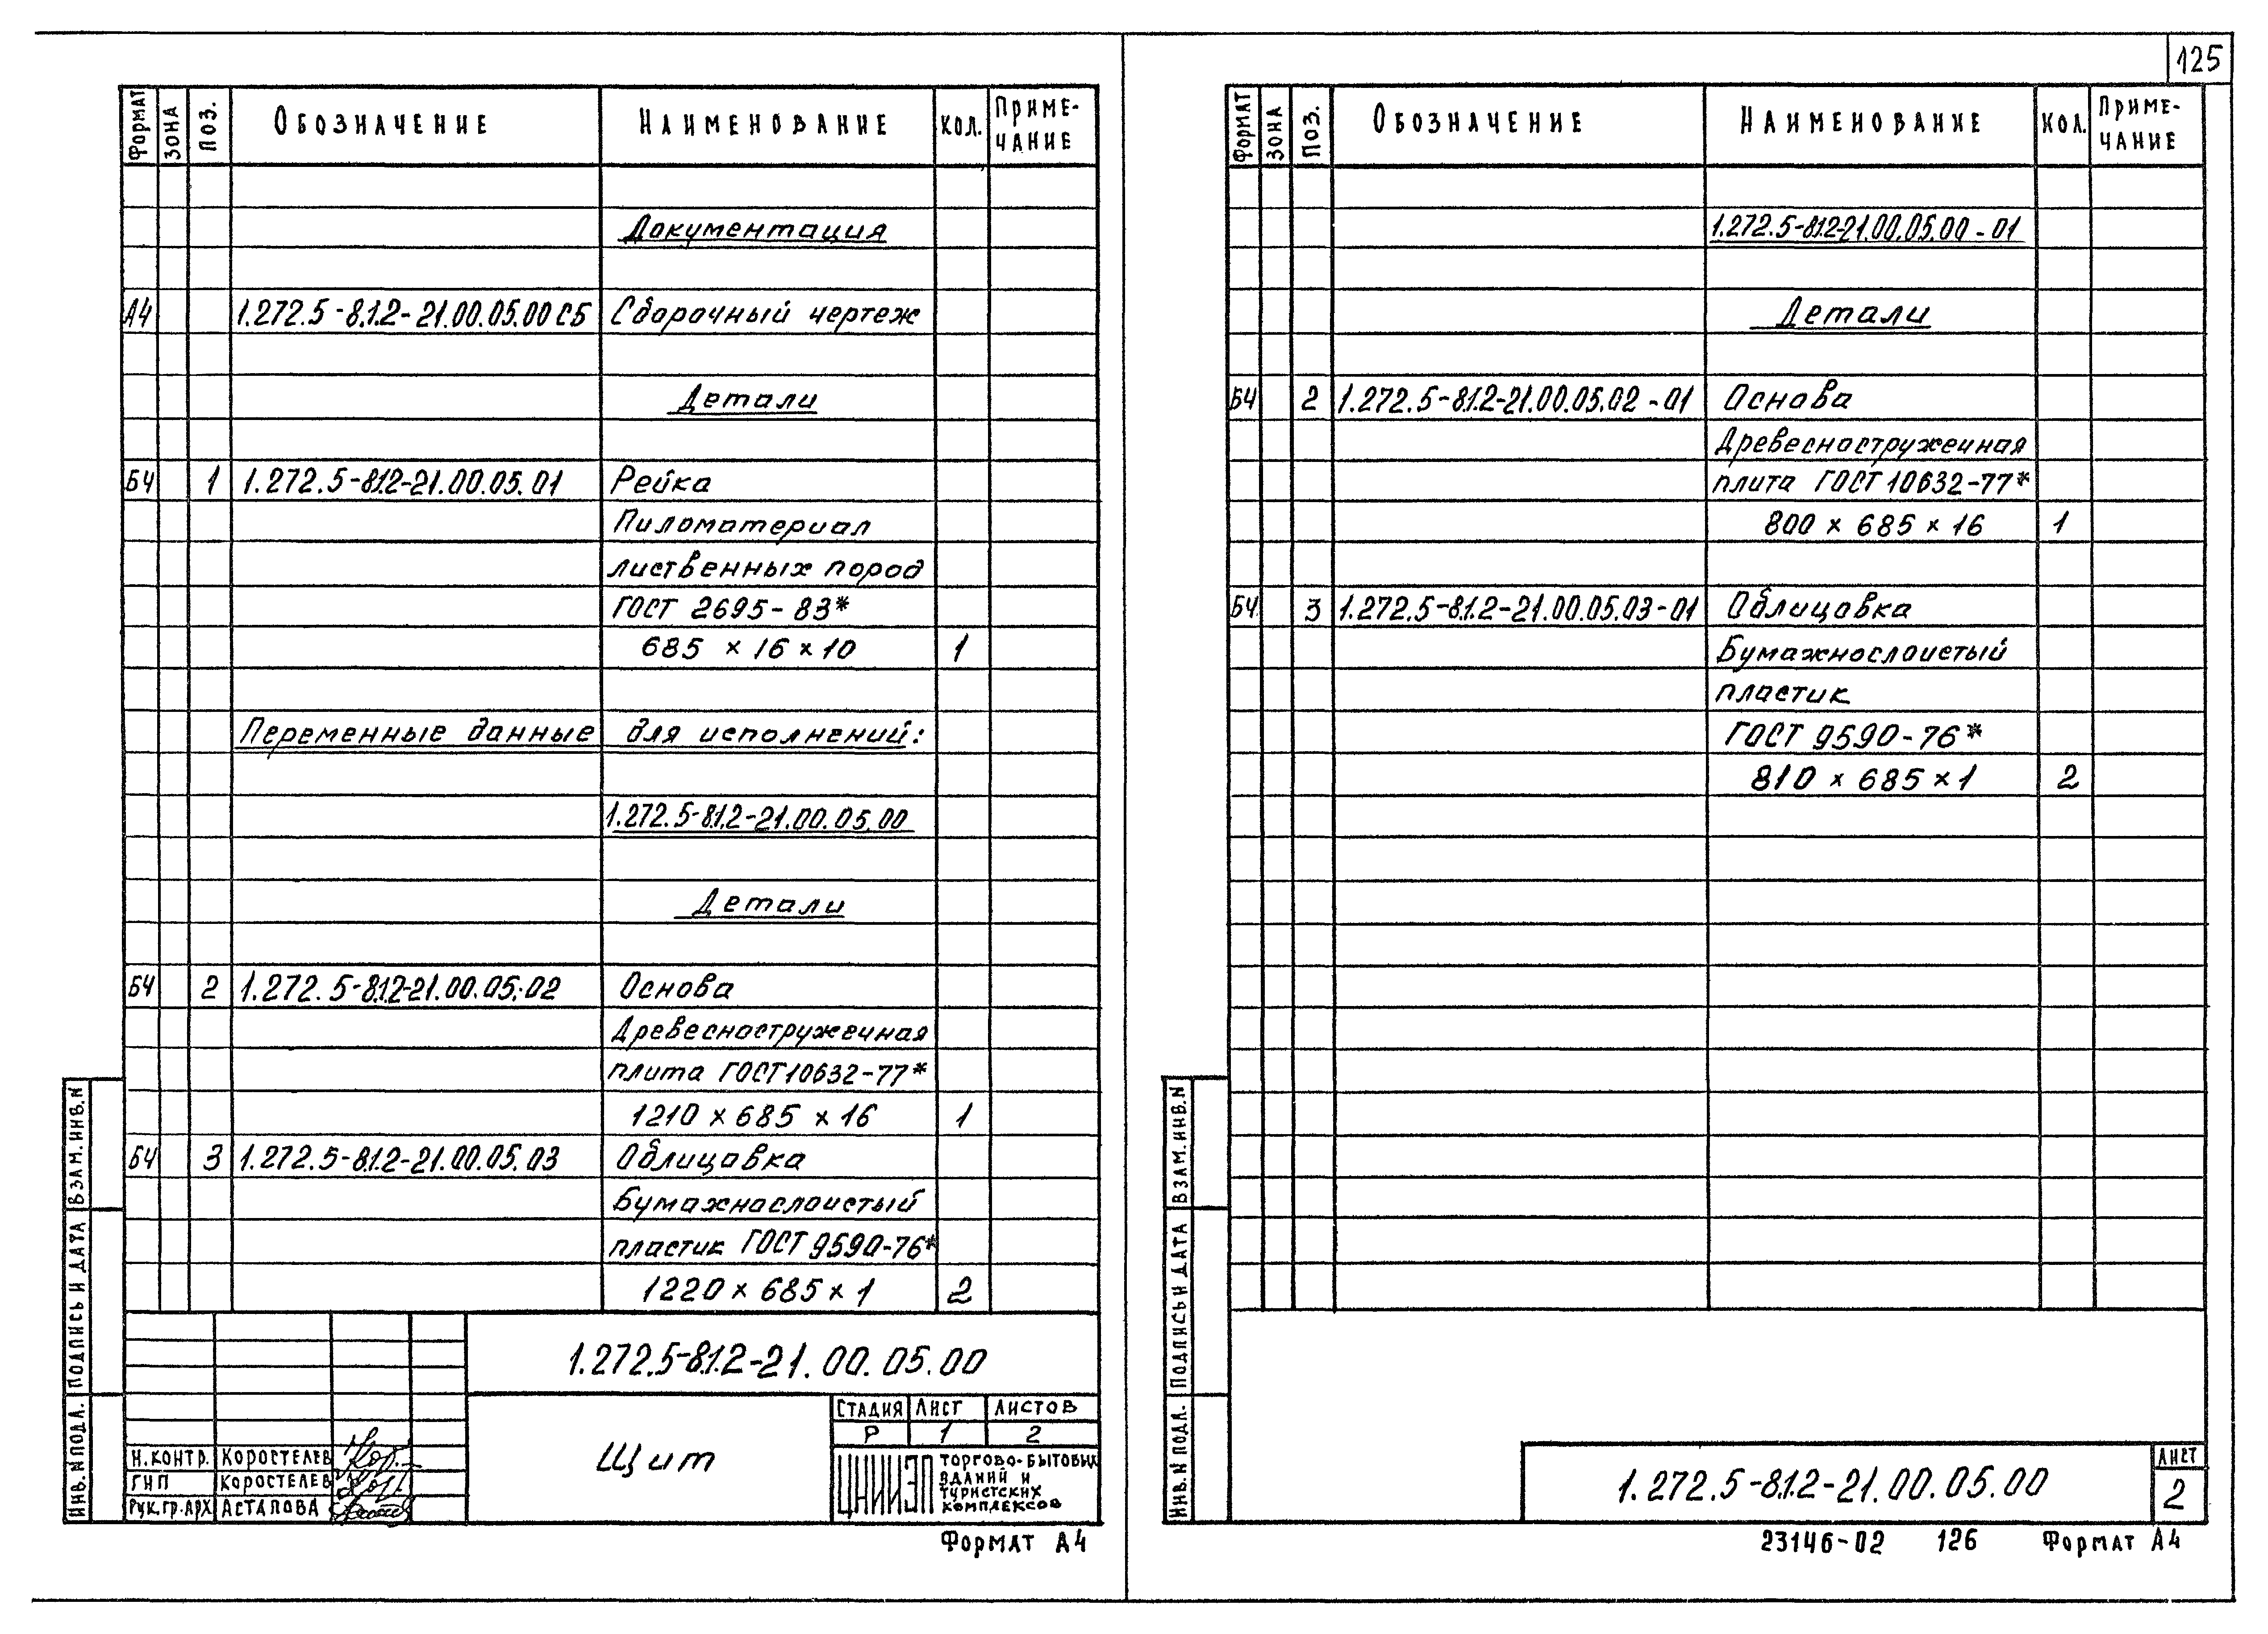 125
ФОРМАТ ЗОНА ПОЗ. ОБОЗНАЧЕНИЕ НАИМЕНОВАНИЕ КОЛ. ПРИМЕ-
ЧАНИЕ
Документация
А4 1.272.5-8.1.2-21.00.05.00 СБ Сборочный чертеж
Детали
БЧ 1 1.272.5-8.1.2-21.00.05.01 Рейка
Пиломатериал
лиственных пород
ГОСТ 2695-83*
685 × 16 × 10 1
Переменные данные для исполнений:
1.272.5-8.1.2-21.00.05.00
Детали
БЧ 2 1.272.5-8.1.2-21.00.05.02 Основа
Древесностружечная
плита ГОСТ 10632-77*
1210 × 685 × 16 1
БЧ 3 1.272.5-8.1.2-21.00.05.03 Облицовка
Бумажнослоистый
пластик ГОСТ 9590-76*
1220 × 685 × 1 2
ИНВ.N ПОДЛ. ПОДПИСЬ И ДАТА ВЗАМ.ИНВ.N
1.272.5-8.1.2-21.00.05.00
Щит
СТАДИЯ ЛИСТ ЛИСТОВ
Р 1 2
Н.КОНТР. КОРОСТЕЛЕВ
ГИП КОРОСТЕЛЕВ
РУК.ГР.АРХ АСТАПОВА
ЦНИИЭП ТОРГОВО-БЫТОВЫХ
ЗДАНИЙ И
ТУРИСТСКИХ
КОМПЛЕКСОВ
ФОРМАТ А4
ФОРМАТ ЗОНА ПОЗ. ОБОЗНАЧЕНИЕ НАИМЕНОВАНИЕ КОЛ. ПРИМЕ-
ЧАНИЕ
1.272.5-8.1.2-21.00.05.00-01
Детали
БЧ 2 1.272.5-8.1.2-21.00.05.02-01 Основа
Древесностружечная
плита ГОСТ 10632-77*
800 × 685 × 16 1
БЧ 3 1.272.5-8.1.2-21.00.05.03-01 Облицовка
Бумажнослоистый
пластик
ГОСТ 9590-76*
810 × 685 × 1 2
ИНВ.N ПОДЛ. ПОДПИСЬ И ДАТА ВЗАМ.ИНВ.N
1.272.5-8.1.2-21.00.05.00
ЛИСТ
2
23146-02 126 ФОРМАТ А4